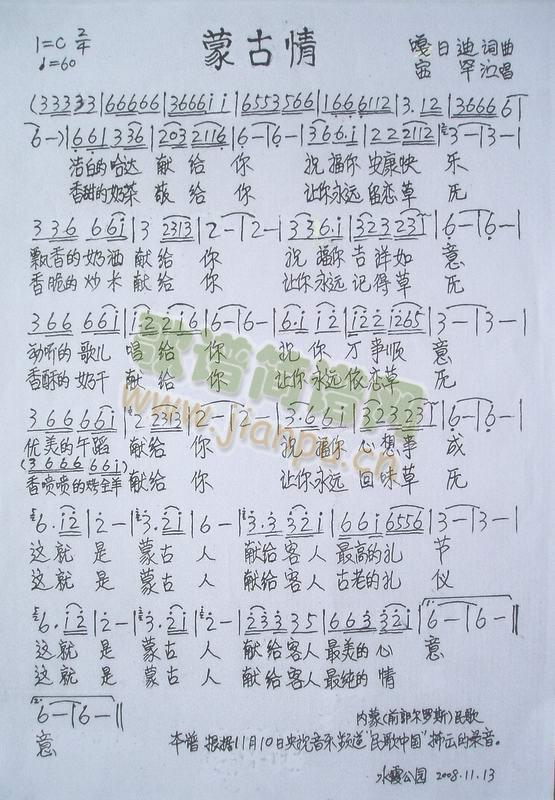 1=C 2/4 蒙古情 嘎日迪 词曲
♩=60 宝罕 演唱
(33333|66666|3666ii|6553566|1666112|3.12|36666
6-)|661336|2032116|6-|6-|366.i|222112|3-|3-|
洁白的哈达 献给 你 祝福你 安康快 乐
香甜的奶茶 献给 你 让你永远 留恋草 原
336 66i|3 2313|2-|2-|336.i|323231|6-|6-|
飘香的奶酒 献给 你 祝 福你 吉祥如 意
香脆的炒米 献给 你 让你永远 记得草 原
366 66i|i.22i6|6-|6-|6.i i2|i22i265|3-|3-|
动听的 歌儿 唱给 你 祝 你 万事顺 意
香酥的 奶干 献给 你 让你永远依恋草 原
366 66i|2 2313|2-|2-|3.66i|323231|6-|6-|
优美的午蹈 献给 你 祝 福你 心想事 成
(3666 66i)
香喷喷的烤全羊 献给 你 让你永远 回味草 原
6.i2|2-|3.2i|6-|3.3 32i|66i6556|3-|3-|
这就 是 蒙古 人 献给客人 最高的礼 节
这就 是 蒙古 人 献给客人 古老的礼 仪
6.i2|2-|3.2i|2-|23335|663 32i|6-|6-‖
这就 是 蒙古 人 献给客人 最美的心 意
这就 是 蒙古 人 献给客人 最纯的 情
6-|6-‖
意 内蒙(前郭尔罗斯)民歌
本谱 根据11月10日央视音乐频道"民歌中国"播出的录音。
水霞公园 2008.11.13
歌谱简谱网
www.jianpu.cn